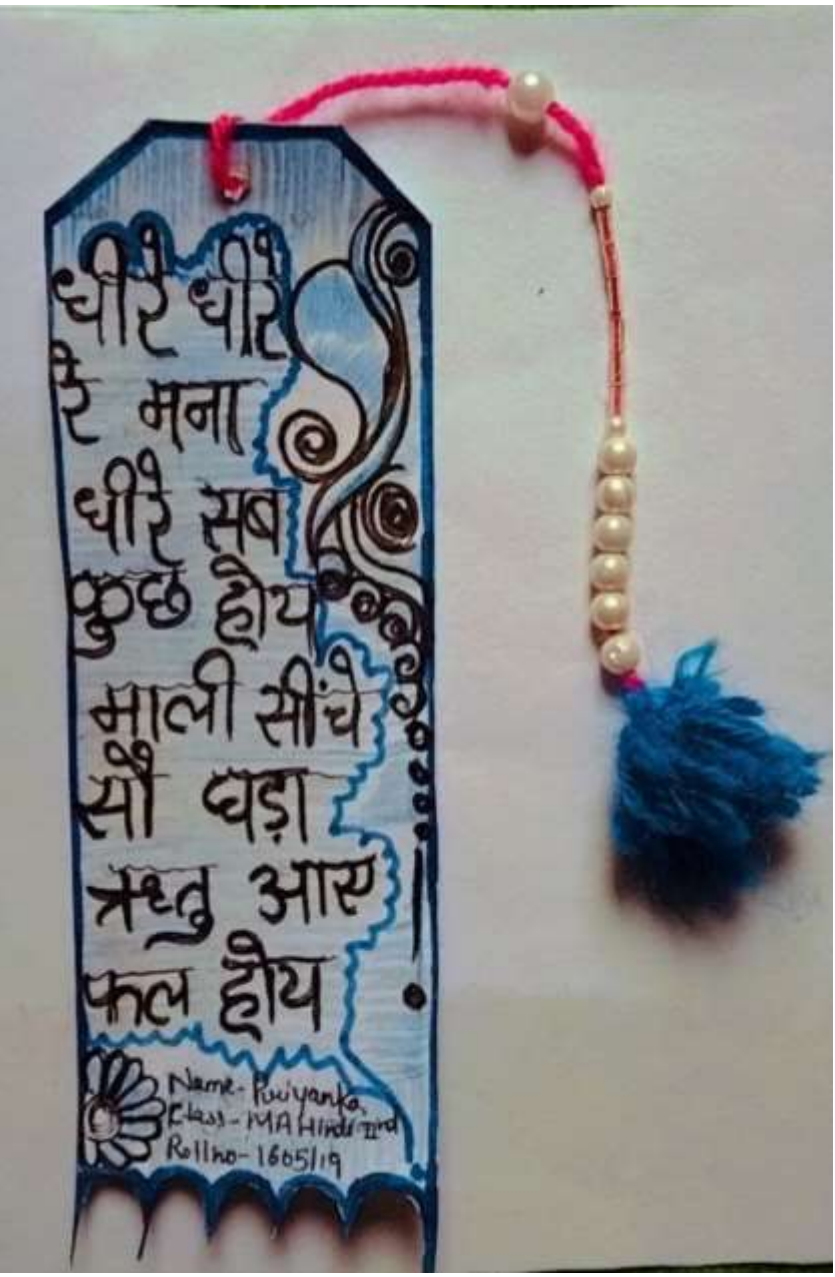 धीरे धीरे
रे मना
धीरे सब
कुछ होय
माली सींचे
सौ घड़ा
ऋतु आए
फल होय
Name- Puiyanka
Class- MA Hindi IInd
Rollno- 1605/19